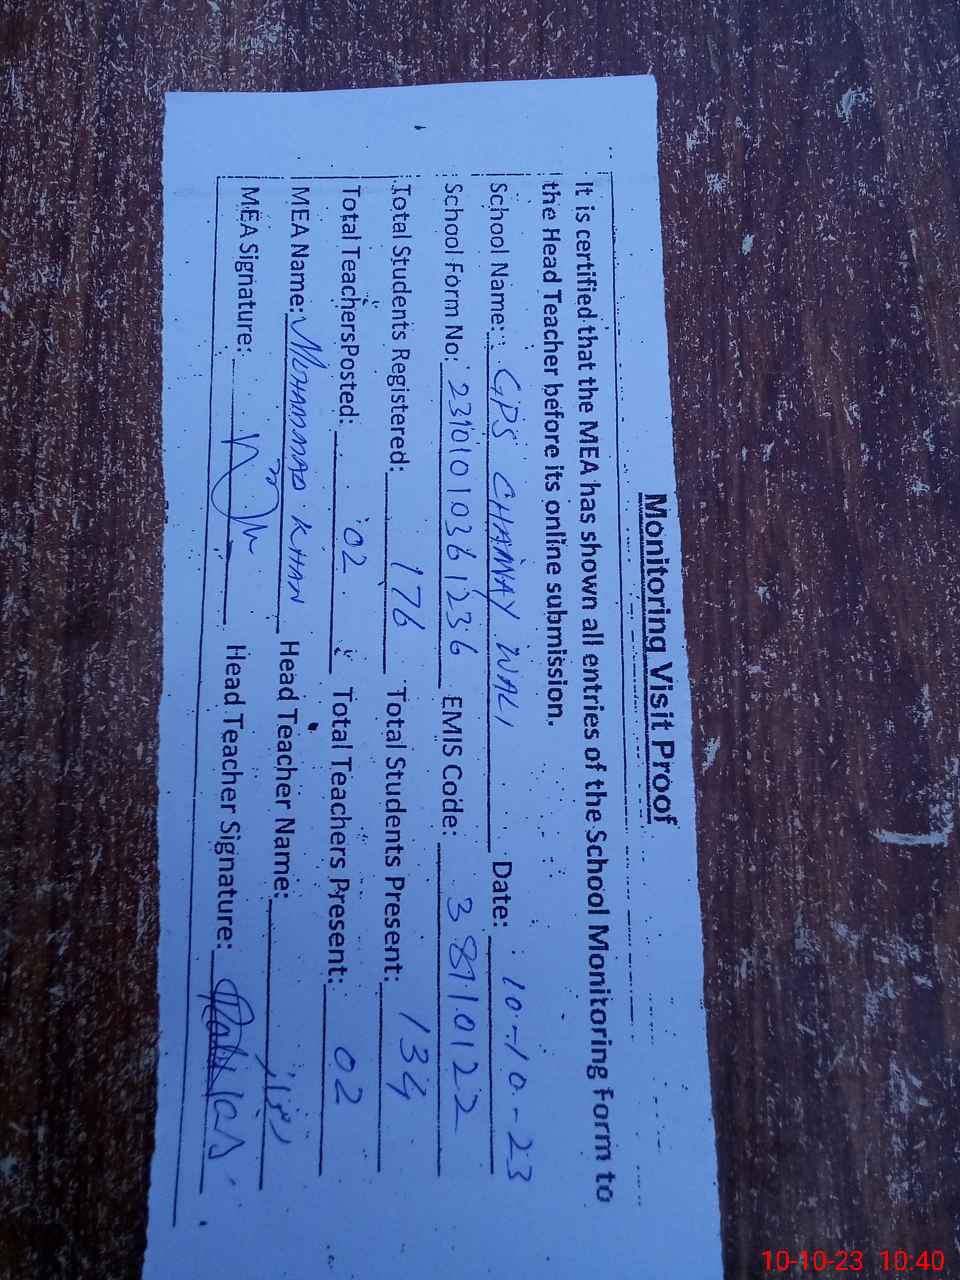 Monitoring Visit Proof
It is certified that the MEA has shown all entries of the School Monitoring Form to
the Head Teacher before its online submission.
School Name: GPS CHANAY WALI Date: 10-10-23
School Form No: 23101010361236 EMIS Code: 38710122
Total Students Registered: 176 Total Students Present: 134
Total TeachersPosted: 02 Total Teachers Present: 02
MEA Name: MUHAMMAD KHAN Head Teacher Name:
MEA Signature: Head Teacher Signature:
10-10-23 10:40